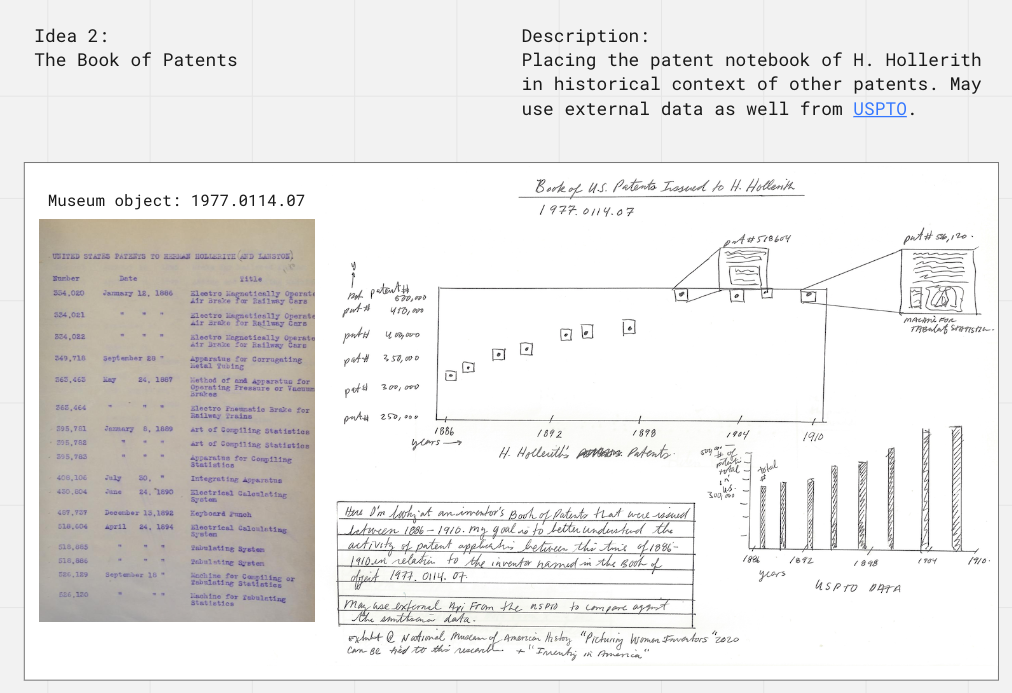 Idea 2:
The Book of Patents
Description:
Placing the patent notebook of H. Hollerith
in historical context of other patents. May
use external data as well from USPTO.
Museum object: 1977.0114.07
UNITED STATES PATENTS TO HERMAN HOLLERITH (AND LANSTON)
Number Date Title
334,020 January 12, 1886 Electro Magnetically Operate
Air Brake for Railway Cars
334,021 " " " Electro Magnetically Operate
Air Brake for Railway Cars
334,022 " " " Electro Magnetically Operate
Air Brake for Railway Cars
349,718 September 28 " Apparatus for Corrugating
Metal Tubing
May 24, 1887 Method of and Apparatus for
Operating Pressure or Vacuum
Brakes
" " " Electro Pneumatic Brake for
Railway Trains
395,781 January 8, 1889 Art of Compiling Statistics
395,782 " " " Art of Compiling Statistics
395,783 " " " Apparatus for Compiling
Statistics
July " Integrating Apparatus
430,804 June 24, 1890 Electrical Calculating
System
487,737 December 13,1892 Keyboard Punch
518,604 April 24, 1894 Electrical Calculating
System
518,885 " " " Tabulating System
518,886 " " " Tabulating System
526,129 September 18 " Machine for Compiling or
Tabulating Statistics
" " " Machine for Tabulating
Statistics
Book of U.S. Patents Issued to H. Hollerith
1977.0114.07
pat# 518604
pat# 56,120.
MACHINE FOR
TABULATG STATISTICS.
y
patent#
500,000
pat# 450,000
pat# 400,000
pat# 350,000
pat# 300,000
pat# 250,000
1886 1892 1898 1904 1910
years →
H. Hollerith's Patents.
# of
patents
total
in
U.S.
300,000
total
#
1886 1892 1898 1904 1910
years
USPTO DATA
Here I'm looking at an inventor's Book of Patents that were issued
between 1886 – 1910. My goal is to better understand the
activity of patent applications between this time of 1886-
1910 in relation to the inventor named in the Book of
object 1977.0114.07.
May use external Api From the USPTO to compare against
the smithsonian data.
Exhibit @ National Museum of American History "Picturing Women Inventors" 2020
can BE tied to this research. + "Inventing in America"